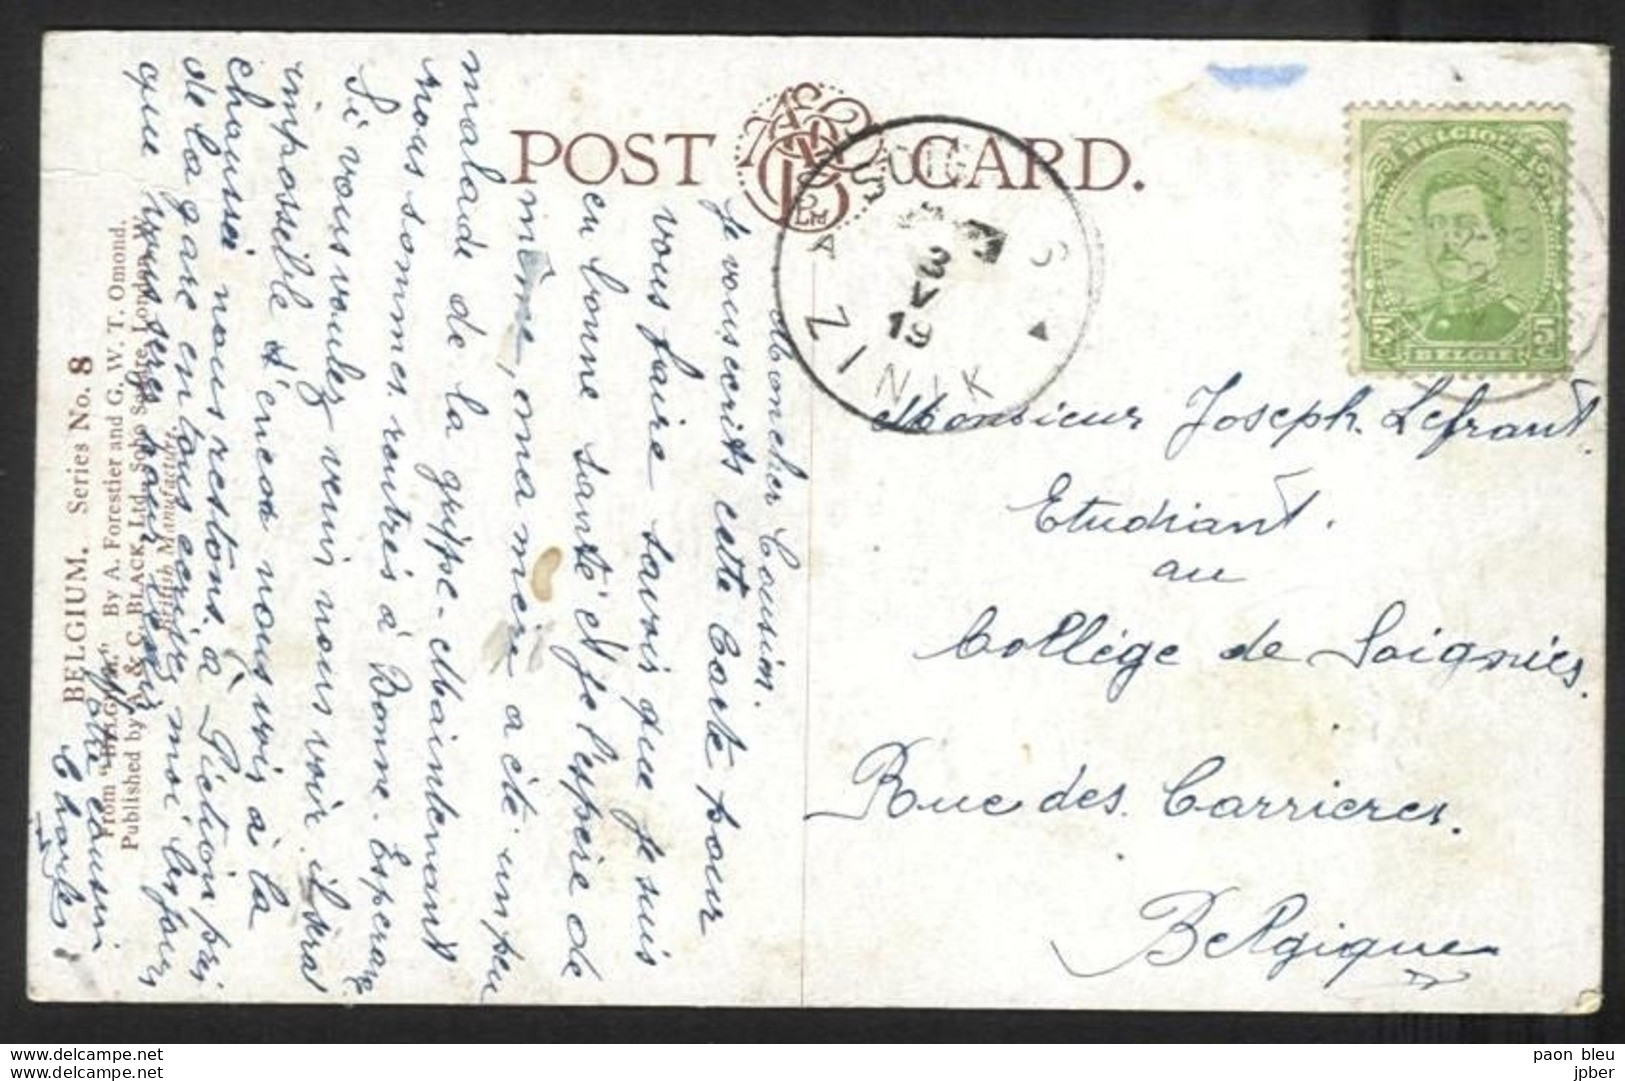 POST CARD.
SOIGNIES
ZINNIK
3 V
19
BELGIQUE
5c 5c
BELGIË
Mon cher Cousin.
Je vous ecrits cette Carte pour
vous faire savoir que je suis
en bonne santé et je l'espère de
même, ma mère a été un peu
malade de la grippe. Maintenant
nous sommes rentrés à Bonne. Esperance
Si vous voulez venir nous voir il seras
impossible
chaussée nous restons à Piéton près
de la gare en tous ecrises moi les jours
que vous
Votre cousin
Charles
Monsieur Joseph Lefrant.
Etudiant.
au
Collège de Soignies.
Rue des Carrieres.
Belgique
BELGIUM. Series No. 8
From "BELGIUM." By A. Forestier and G. W. T. Omond.
Published by A. & C. BLACK, Ltd., Soho Square, London, W.
British Manufacture.
www.delcampe.net
www.delcampe.net
paon bleu
jpber